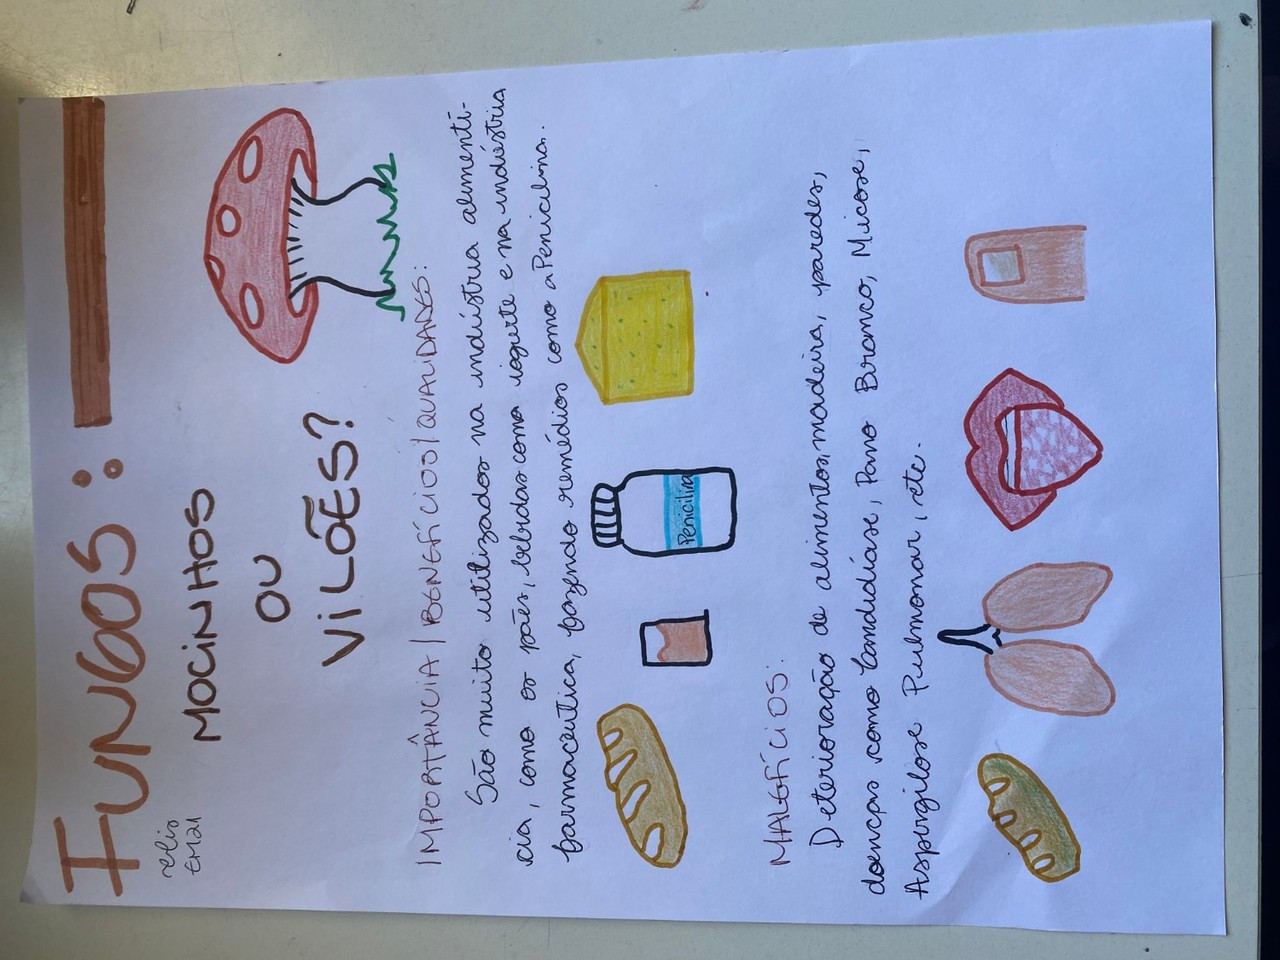 FUNGOS:
elis
EM21
MOCINHOS
OU
VILÕES?
IMPORTÂNCIA / BENEFÍCIOS / QUALIDADES:
São muito utilizados na indústria alimentí-
cia, como os pães, bebidas como iogurte e na indústria
farmacêutica, fazendo remédios como a Penicilina.
Penicilina
MALEFÍCIOS:
Deterioração de alimentos, madeira, paredes,
doenças como Candidíase, Pano Branco, Micose,
Aspergilose Pulmonar, etc.